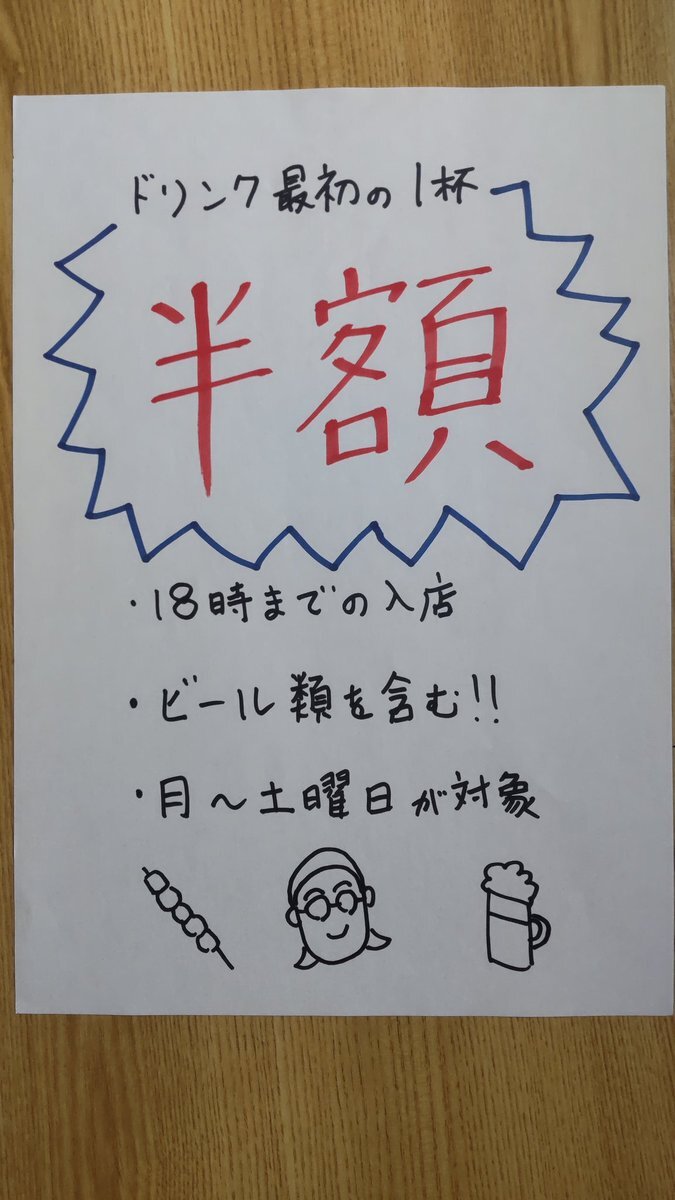 ドリンク最初の1杯
半額
・18時までの入店
・ビール類を含む!!
・月〜土曜日が対象